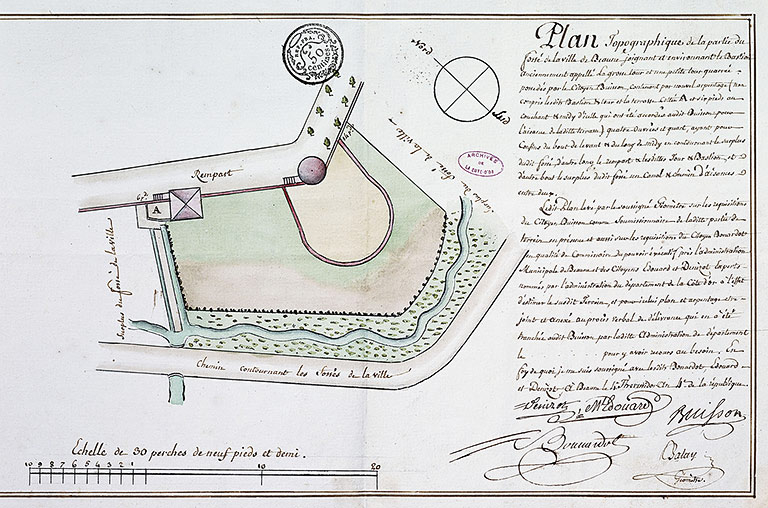 Plan Topographique de la partie du
fossé de la ville de Beaune joignant et environnant le Bastion
anciennement appellé la grosse tour et une petite tour quarrée
possedés par le Citoyen Buisson, contenant par nouvel arpentage (non
compris lesdits Bastion & tour et la terrasse cottée A et dix pieds au
couchant & midy d'icelle qui ont été accordés audit Buisson pour
l'aisance de ladite terrasse) quatre ouvrées et quart, ayant pour
Confins du bout de levant & du long de midy en contournant le surplus
dudit fossé, d'autre long le rempart & lesdittes Tour & Bastion, et
d'autre bout le surplus dudit fossé un Canal & Chemin d'aisances
entre deux.
Ledit Plan levé par le soussigné Géomètre sur les requisitions
du Citoyen Buisson comme Soumissionnaire de ladite partie de
terrein en présence et aussi sur les requisitions du Citoyen Bonardot
en qualité de Commissaire du pouvoir executif près l'administration
Municipale de Beaune et des Citoyens Edouard et Denizot experts
nommés par l'administration du département de la Côte d'or à l'effet
d'estimer le susdit Terrein, et pour iceluy plan et arpentage etre
joint et annexé au procès verbal de délivrance qui en a été
tranchée audit Buisson par ladite Administration de département
le pour y avoir recours au besoin. En
foy de quoi, je me suis soussigné avec lesdits Bonardot, Edouard
et Denizot, A Beaune le Thermidor An 4e de la république.
Denizot
Mt Edouard
Buisson
Bonnardot
Balay
Géomètre
Nord
Sud
50
centimes
ARCHIVES
DE LA
CÔTE D'OR
Rempart
A
Surplus du fossé de la ville
Surplus du fossé de la ville
Chemin contournant les fossés de la ville
Echelle de 30 perches de neuf pieds et demi.
10 9 8 7 6 5 4 3 2 1 10 20